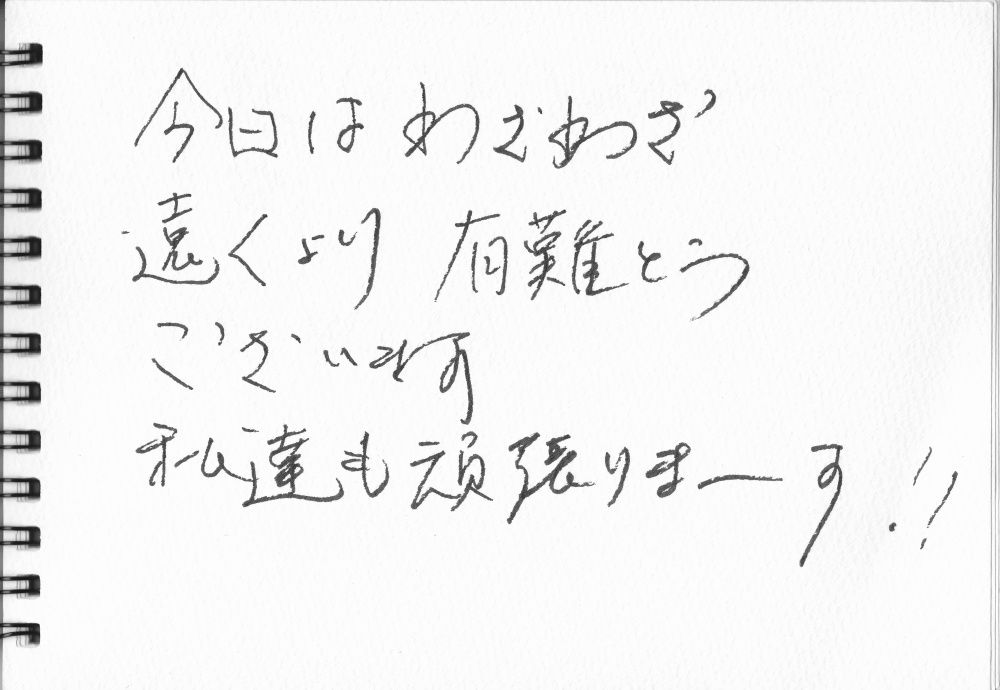 今日は わざわざ
遠くより 有難とう
ございます
私達も頑張りまーす!!